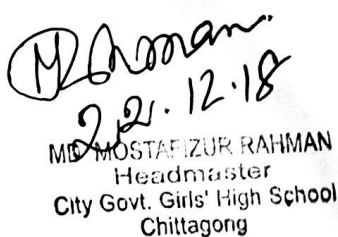 MRahman
22.12.18
MD MOSTAFIZUR RAHMAN
Headmaster
City Govt. Girls' High School
Chittagong